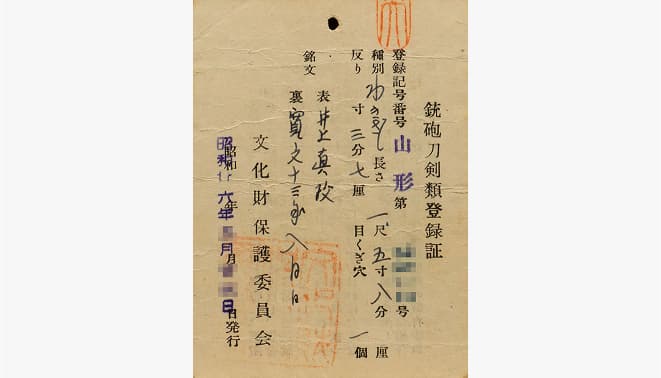 銃砲刀剣類登録証
登録記号番号 山形 第 号
種別 わきざし 長さ 一尺五寸八分 厘
反り 寸三分七厘 目くぎ穴 一個
銘文 表 井上真改
裏 寛文十三年八月日
文化財保護委員会
昭和 年 月 日発行
昭和 六年 月 日